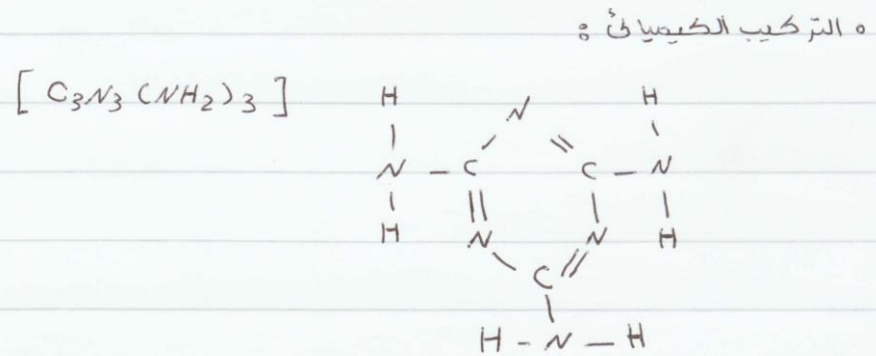 • التركيب الكيميائى :
[ C₃N₃ (NH₂)₃ ]
H N H
N – C C – N
H N N H
C
H – N – H